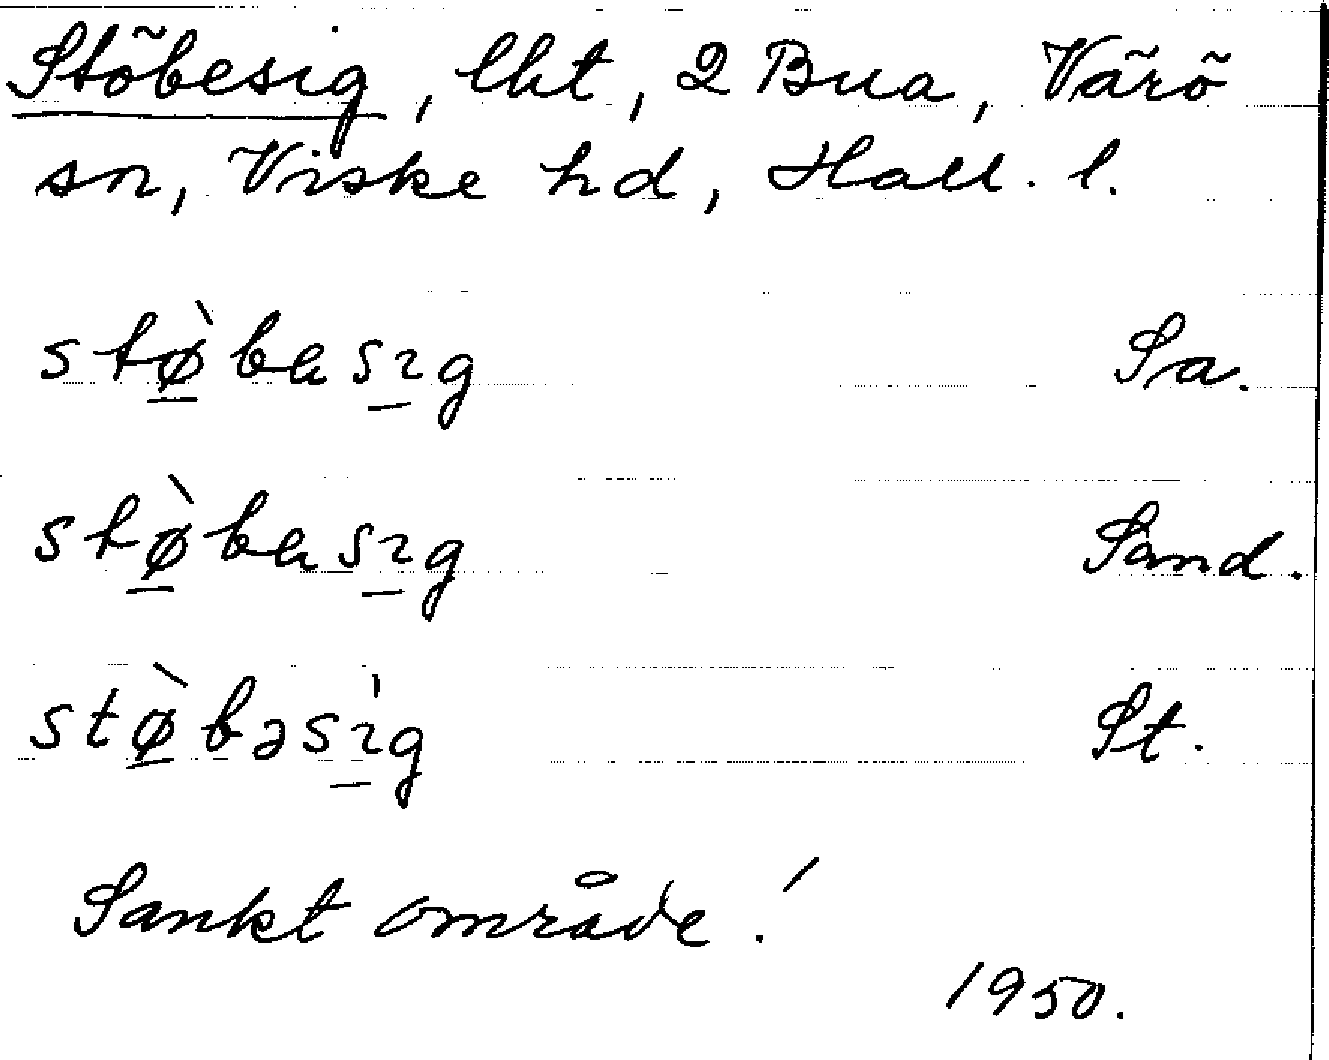 Stöbesig, lht, 2 Bua, Värö
sn, Viske hd, Hall. l.
stø̀basıg Sa.
stø̀basıg Sand.
stø̀bəsıg St.
Sankt område!
1950.